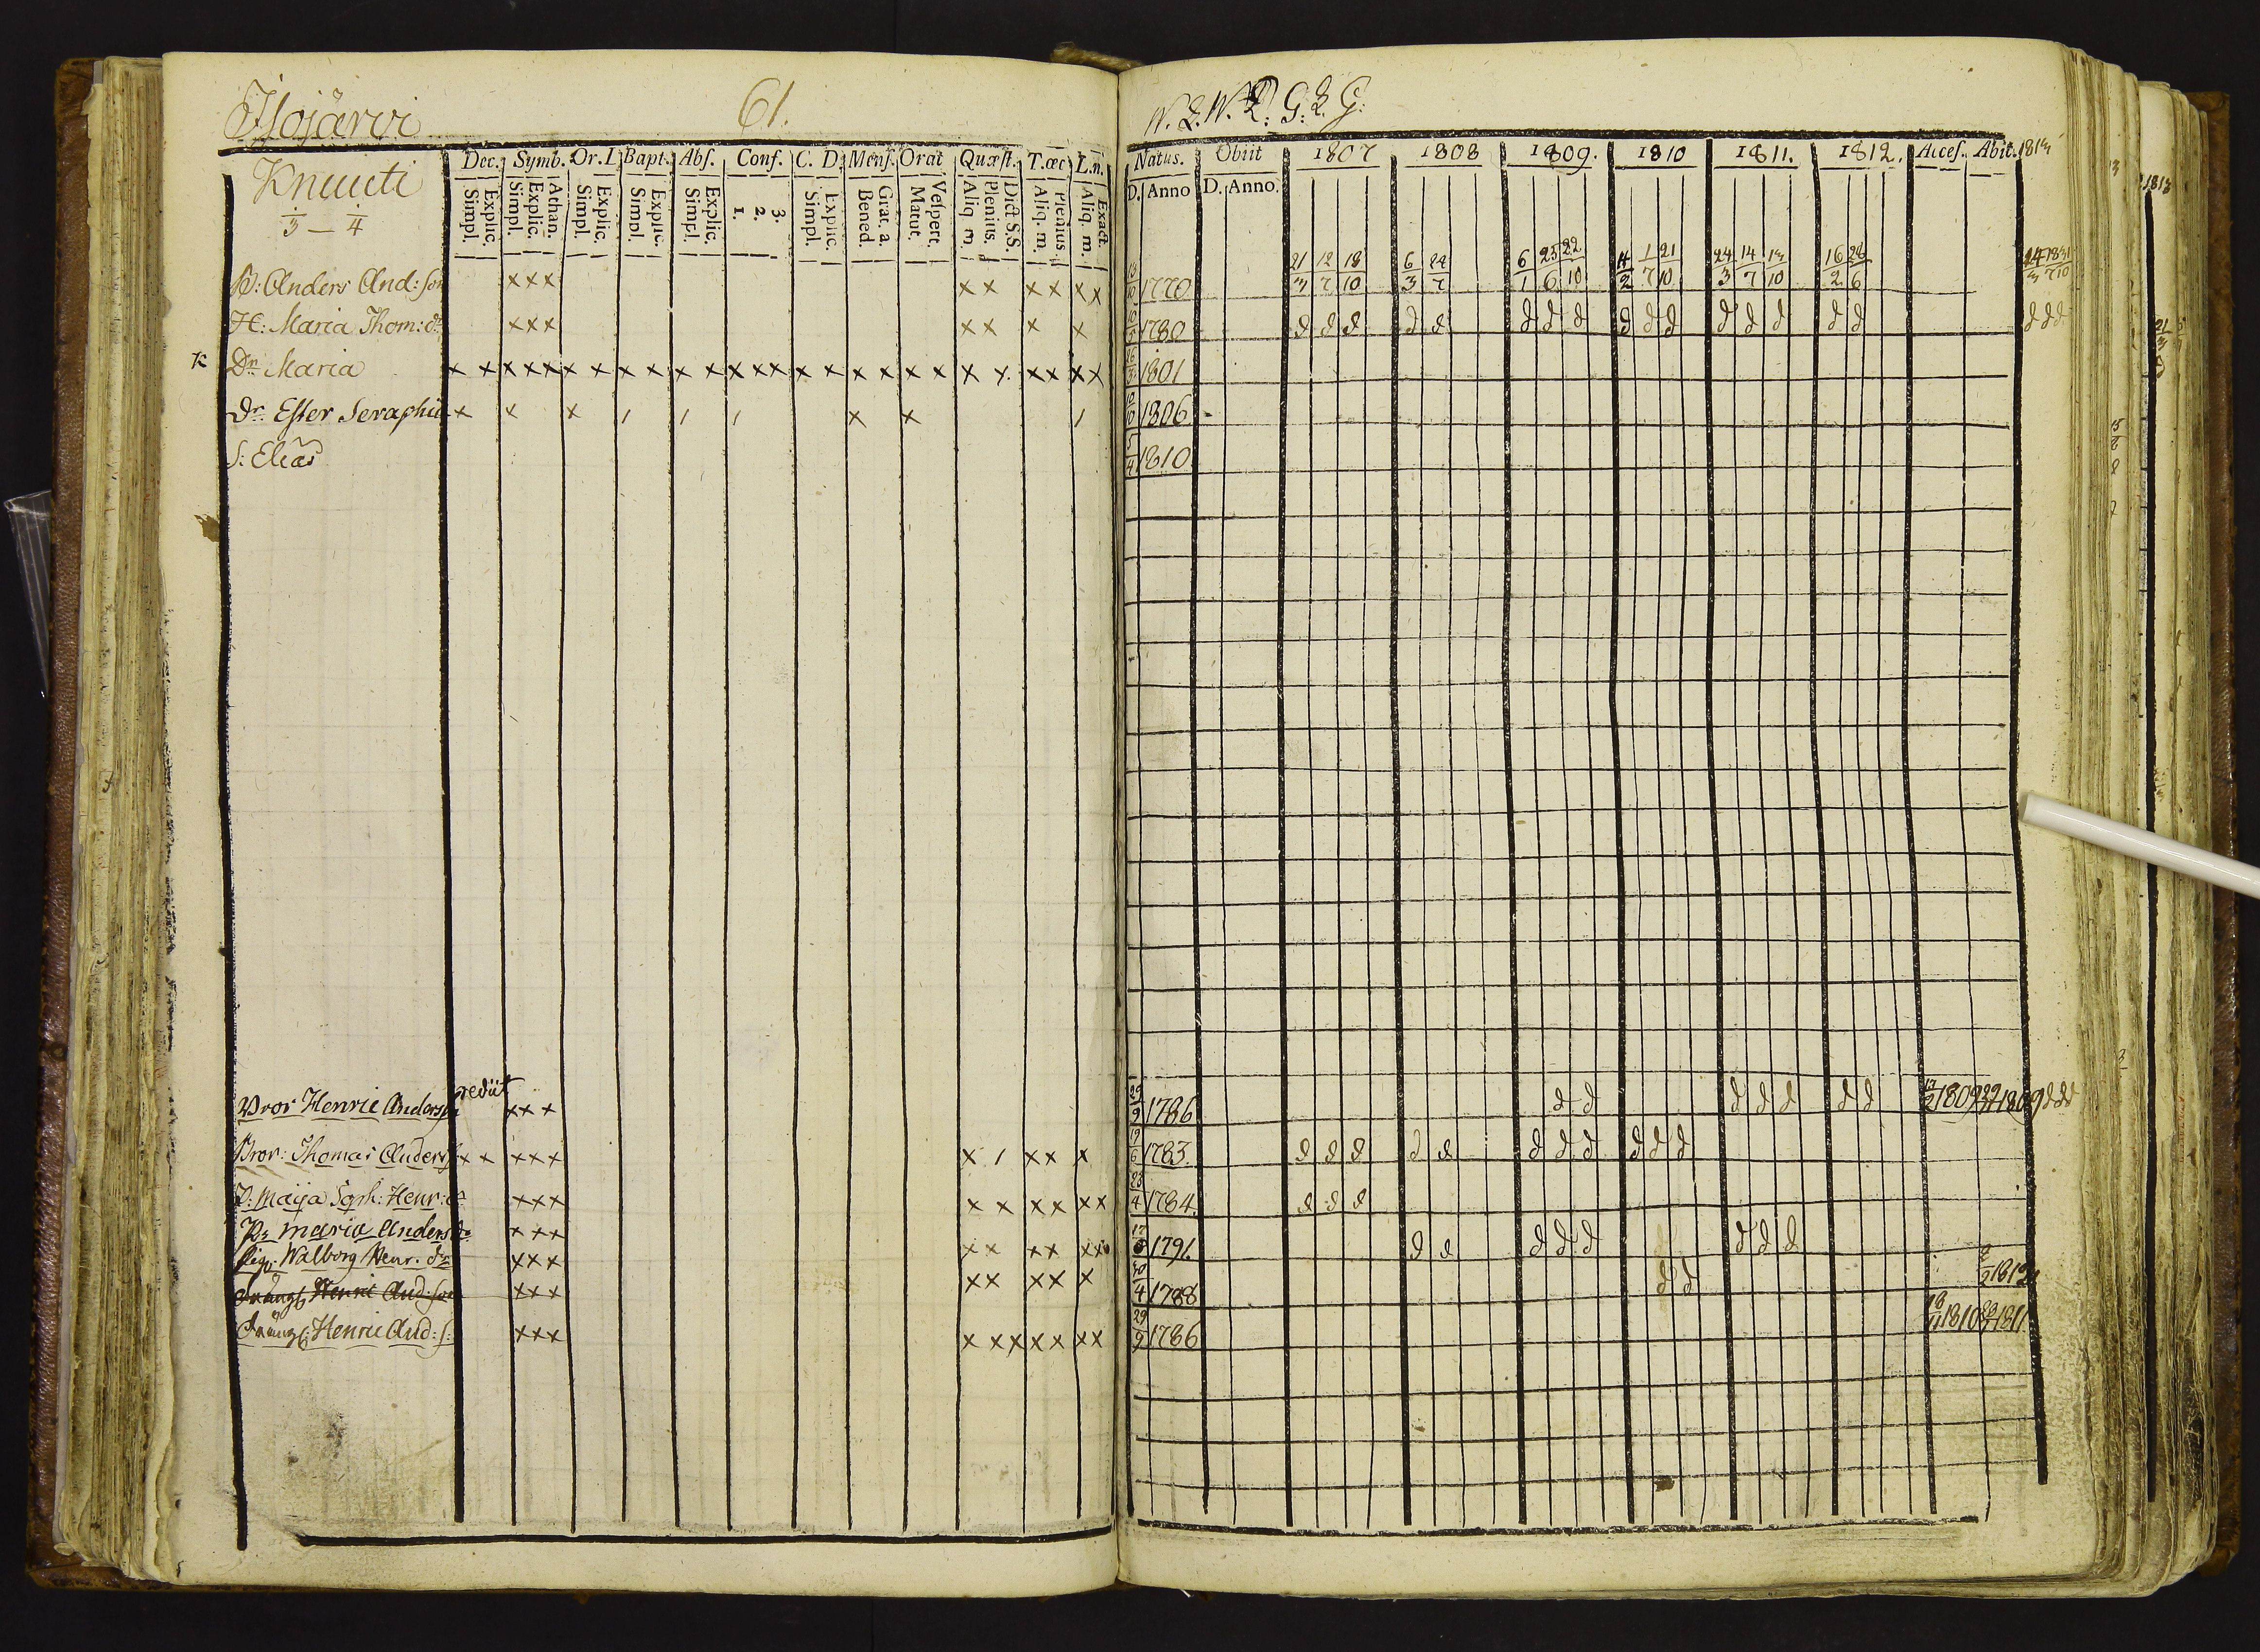 Isojärvi 61.
Knuuti
3 — 4
Dec. Symb. Or. D Bapt. Abs. Conf. C. D. Mens. Orat Quæst. T.œc L.n.
Explic. Simpl. Athan. Explic. Simpl. Explic. Simpl. Explic. Simpl. Explic. Simpl. 3. 2. 1. Explic. Simpl. Grat. a. Bened. Vespert. Matut. Dict S.S. Plenius. Aliq. m. Plenius. Aliq. m. Exact. Aliq. m.
B: Anders And: son xxx xx xx xx
H: Maria Thom: dr xxx xx x x
K Dr Maria x x x x x x x x x x x x x x x x x x x x x x x x x x x
Dr Ester Seraphia x x x / / / x x /
S: Elias
Bror Henric Anderson rediit xxx
Bror: Thomas Anders x x xxx x / xx x
P: Maija Soph: Henr: dr xxx xx xx xx
P: Maria Anders dr xxx xx xx xx
Pig: Walborg Henr. dr xxx xx xx x
Dräng: Henric And: son xxx
Dräng: Henric And: s: xxx x xx xx xx
Natus. Obiit 1807 1808 1809. 1810 1811. 1812. Acces. Abit. 1813
D. Anno D. Anno.
21 12 18 6 24 6 25 22 4 1 21 24 14 13 16 28
3 7 10 3 7 1 6 10 2 7 10 3 7 10 2 6
1770
1780 d d d d d d d d d d d d d d d d d d d
1801
1806
5/4 1810
29/9 1786 d d d d d d d 1809 1809 d d d
19/6 1783. d d d d d d d d d d d
23/4 1784. d d d
17 1791 d d d d d d d d
30/4 1788 d d 1812
29/9 1786 1810 1811